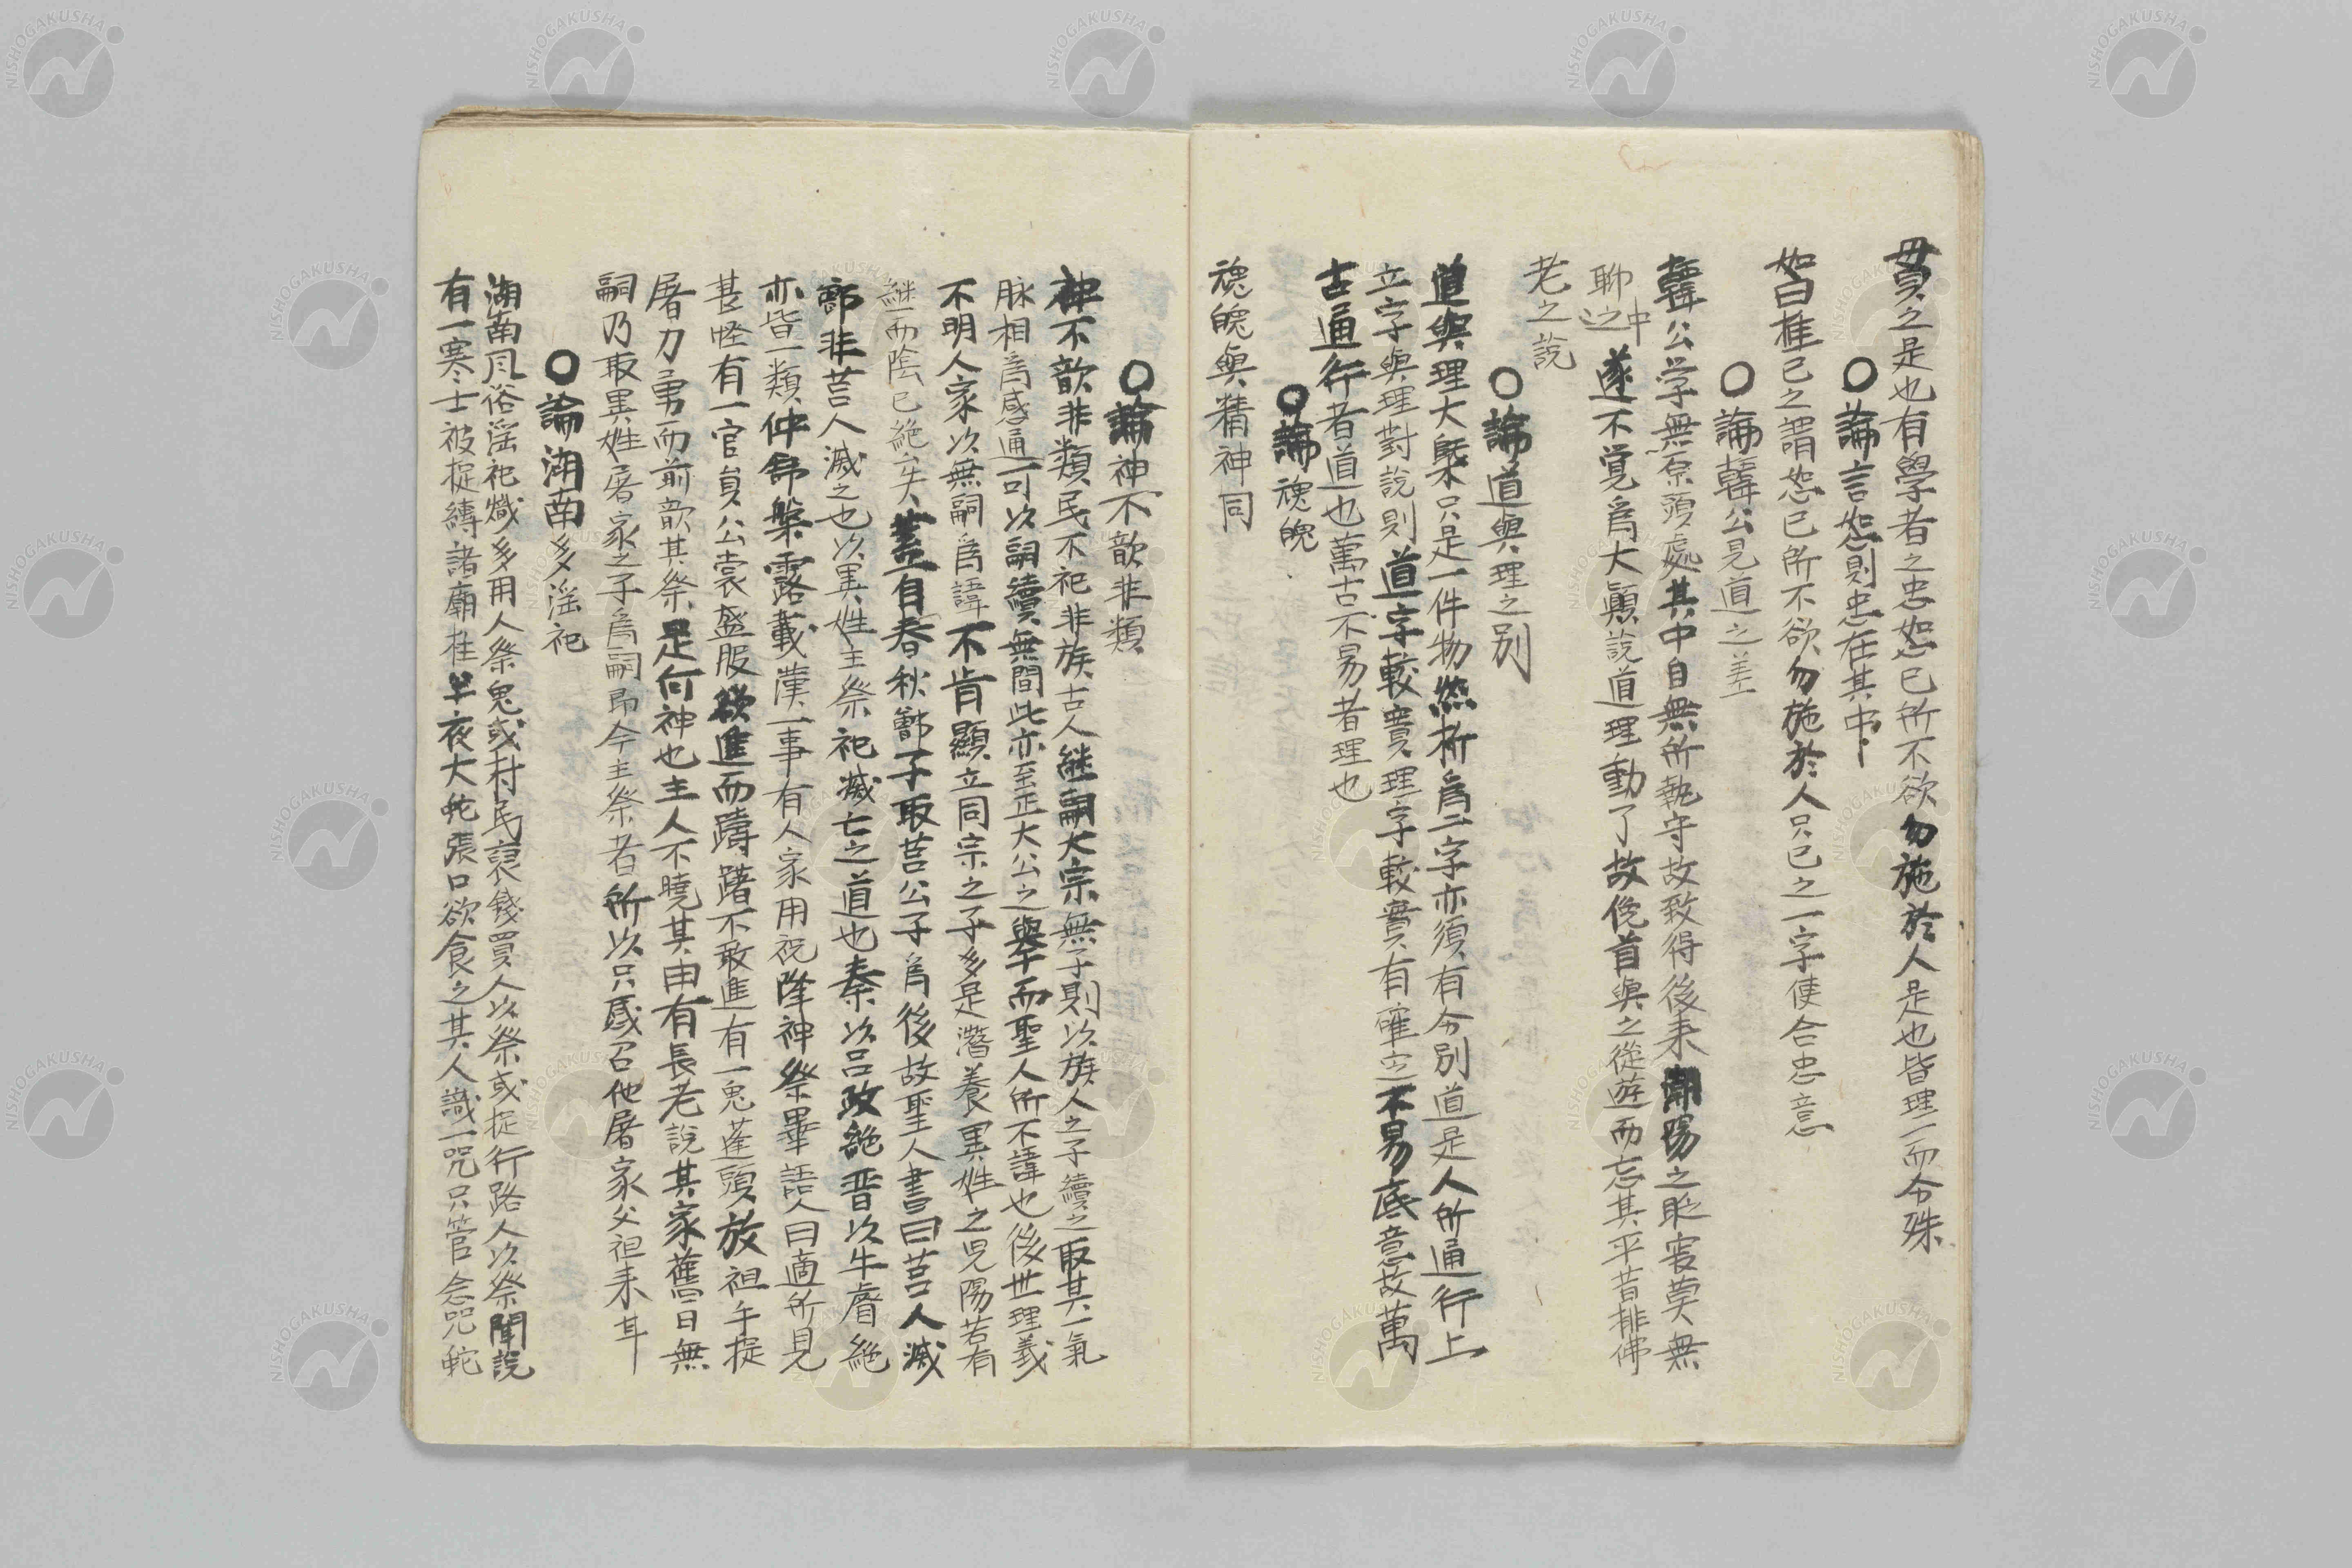 貫之是也有學者之忠恕己所不欲勿施於人是也皆理一而分殊
○論言恕則忠在其中
如曰推己之謂恕己所不欲勿施於人只己之一字便含忠意
○論韓公見道之差
韓公学無原頭處其中自無所執守故致得後来潮陽之貶寂莫無
聊中之中遂不覚為大顚說道理動了故俛首與之從遊而忘其平昔排佛
老之說
○論道與理之別
道與理大槩只是一件物然析為二字亦須有分別道是人所通行上
立字與理對說則道字較寛理字較實有確定不易底意故萬
古通行者道也萬古不易者理也
○論魂魄
魂魄與精神同
○論神不歆非類
神不歆非類民不祀非族古人継嗣大宗無子則以族人之子續之取其一氣
脉相為感通可以嗣續無間此亦至正大公之舉而聖人所不諱也後世理義
不明人家以無嗣為諱不肯顯立同宗之子多是潛養異姓之児陽若有
継而陰已絶矣蓋自春秋鄫子取莒公子為後故聖人書曰莒人滅
鄫非莒人滅之也以異姓主祭祀滅亡之道也秦以呂政絶晋以牛睿絶
亦皆一類仲舒繁露載漢一事有人家用祝降神祭畢語人曰適所見
甚怪有一官員公裳盛服欲進而躊躇不敢進有一鬼蓬頭放祖手提
屠刀勇而前歆其祭是何神也主人不曉其由有長老說其家舊日無
嗣乃取異姓屠家之子為嗣即今主祭者所以只感召他屠家父祖来耳
○論湖南多淫祀
湖南風俗淫祀熾多用人祭鬼或村民裒錢買人以祭或捉行路人以祭聞說
有一寒士被捉縛諸廟柱半夜大蛇張口欲食之其人識一咒只管念咒蛇